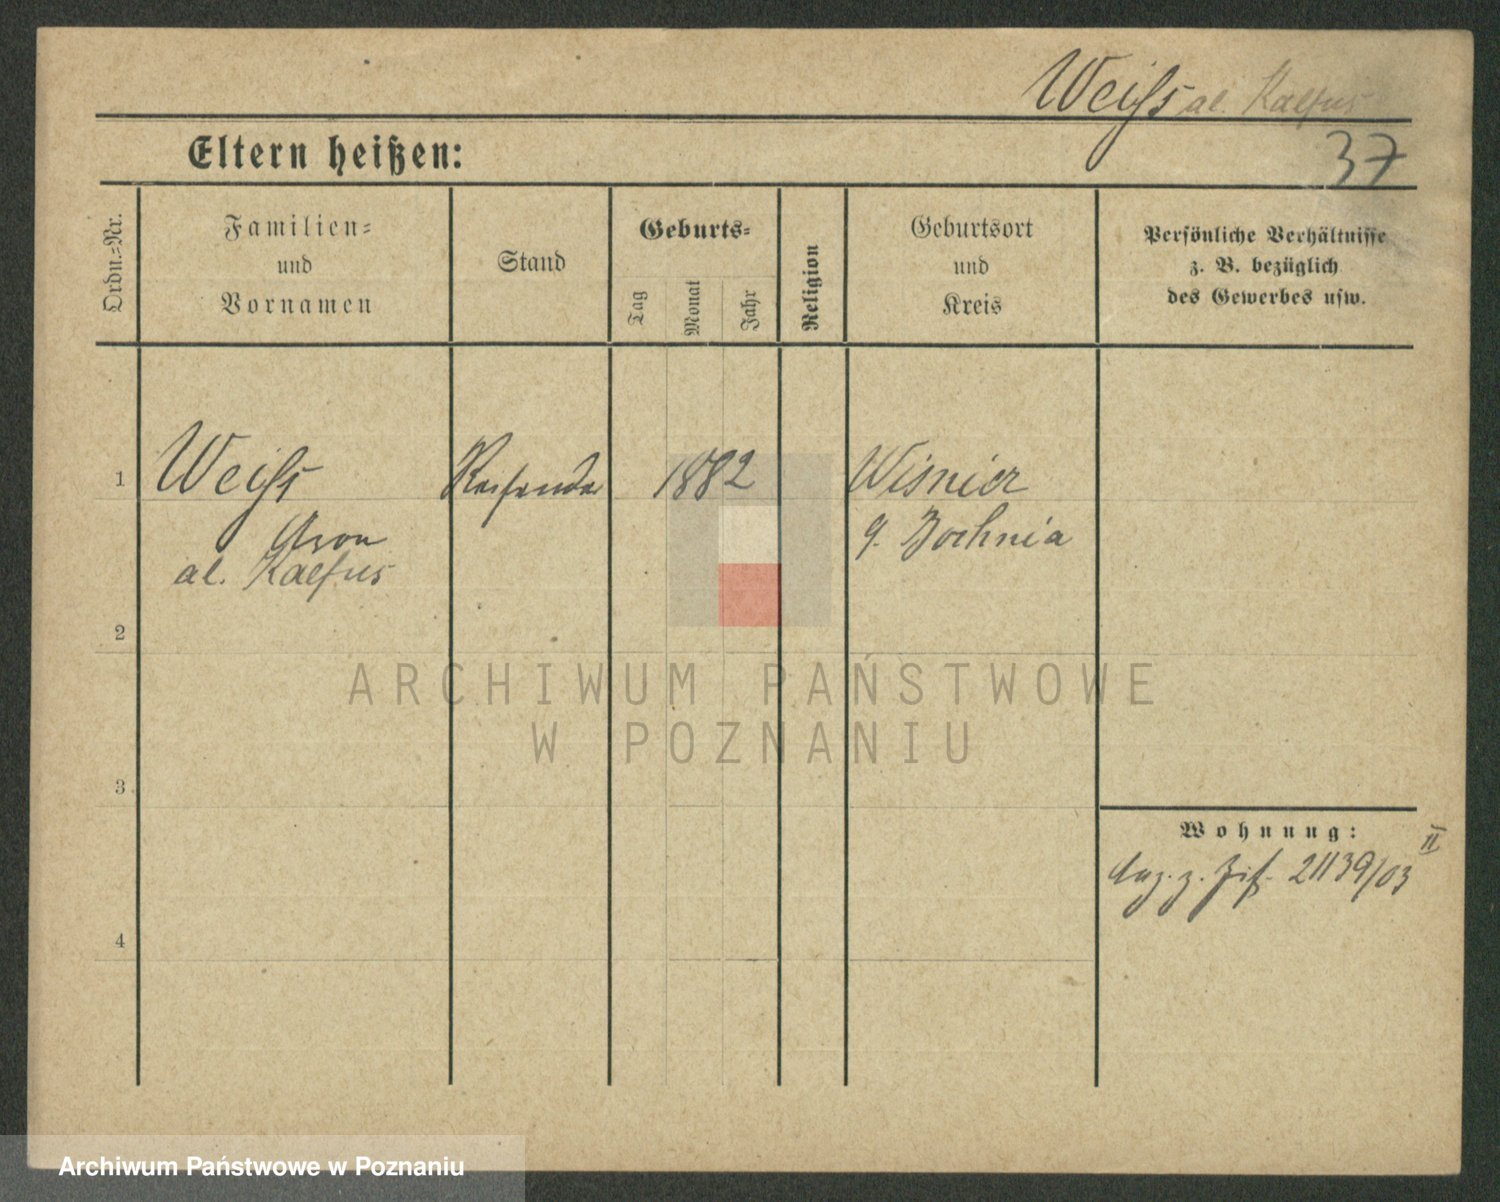 Weiſs al. Kalfus
37
Eltern heißen:
Ordn.=Nr.
Familien=
und
Vornamen
Stand
Geburts=
Tag
Monat
Jahr
Religion
Geburtsort
und
Kreis
Persönliche Verhältnisse
z. B. bezüglich
des Gewerbes usw.
1
Weiſs
Aron
al. Kalfus
Reisender
1882
Wisnicz
g. Bochnia
2
3
4
Wohnung:
II
z. 21139/03
ARCHIWUM PAŃSTWOWE
W POZNANIU
Archiwum Państwowe w Poznaniu